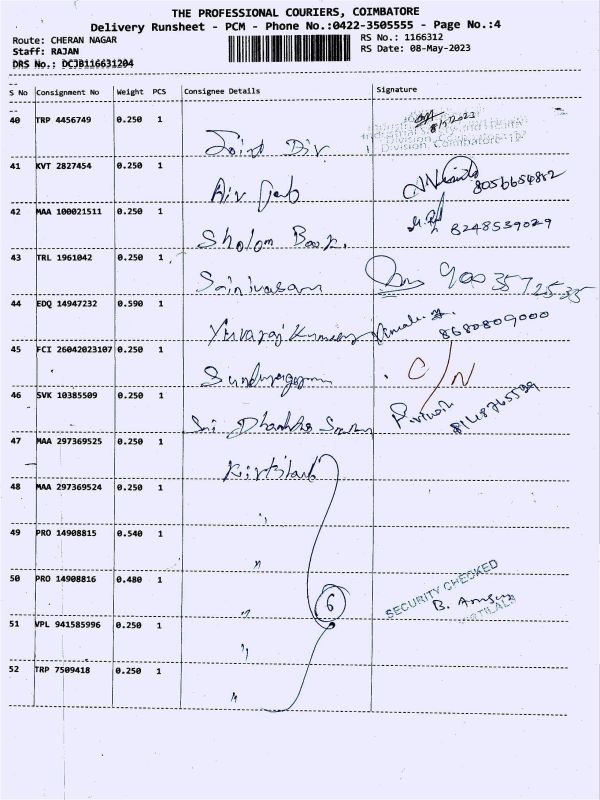 THE PROFESSIONAL COURIERS, COIMBATORE
Delivery Runsheet - PCM - Phone No.:0422-3505555 - Page No.:4
Route: CHERAN NAGAR
RS No.: 1166312
Staff: RAJAN
RS Date: 08-May-2023
DRS No.: DCJB116631204
S No Consignment No Weight PCS Consignee Details Signature
40 TRP 4456749 0.250 1
Joint Div
Division, Coimbatore
41 KVT 2827454 0.250 1
Air
8056654882
42 MAA 100021511 0.250 1
Sholom Book.
8248539029
43 TRL 1961042 0.250 1
Srinivasan
9003572535
44 EDQ 14947232 0.590 1
Yuvaraj
8680809000
45 FCI 26042023107 0.250 1
C/N
46 SVK 10385509 0.250 1
Sri
8148765599
47 MAA 297369525 0.250 1
Kirtilals
48 MAA 297369524 0.250 1
"
49 PRO 14908815 0.540 1
"
50 PRO 14908816 0.480 1
"
6
SECURITY CHECKED
B.
KIRTILALS
51 VPL 941585996 0.250 1
"
52 TRP 7509418 0.250 1
"